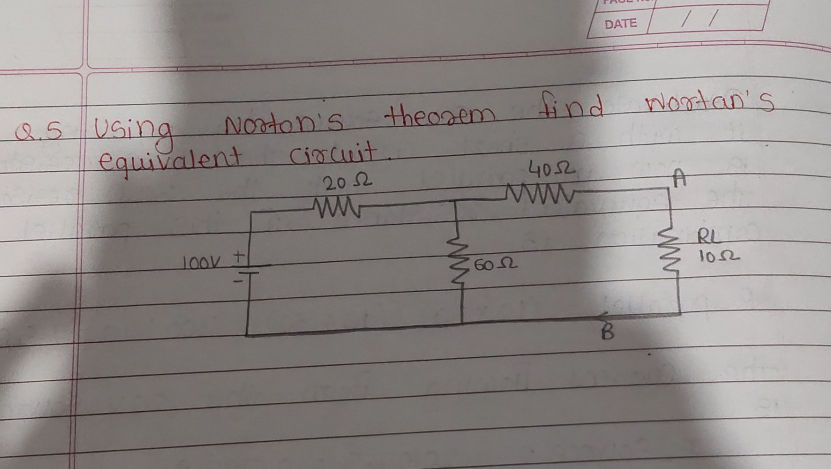 DATE / /
Q.5 Using Norton's theorem find Nortan's
equivalent circuit.
20 Ω
40 Ω
A
100V +
-
60 Ω
RL
10 Ω
B